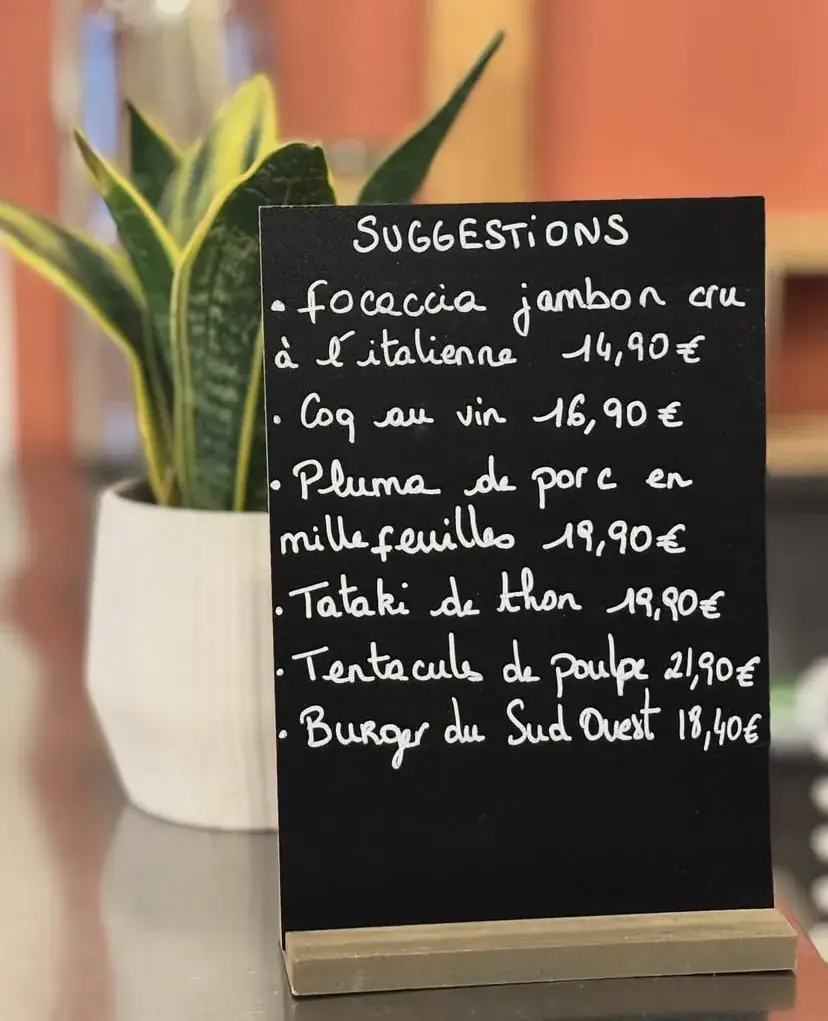 SUGGESTIONS
• focaccia jambon cru
à l'italienne 14,90€
• Coq au vin 16,90€
• Pluma de porc en
millefeuilles 19,90€
• Tataki de thon 19,90€
• Tentacule de poulpe 21,90€
• Burger du Sud Ouest 18,40€